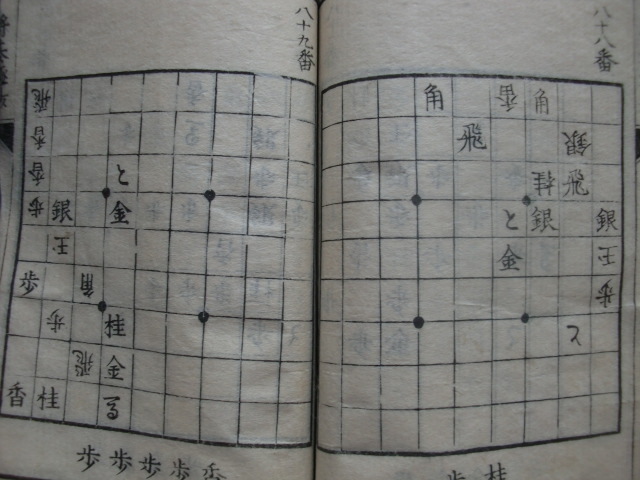 八十八番
角 香 角
飛 銀
桂 飛
と 銀 銀
金 王
歩
と
歩 桂
八十九番
飛
香
香 と
歩 銀 金
王
歩 角
歩 桂
飛 金
香 桂 馬
歩 歩 歩 歩 香